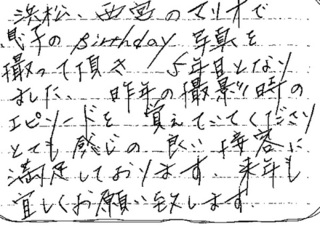 浜松、西宮のマリオで
息子のBirthday 写真を
撮って頂き 5年目となり
ました。 昨年の撮影時の
エピソードを 覚えていてくださり
とても感じの良い接客に
満足しております。来年も
宜しくお願い致します。